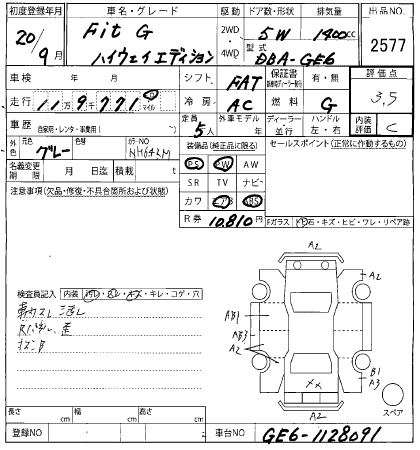 初度登録年月 車名・グレード 2WD・4WD ドア数・形状 排気量 出品NO
20/9月 Fit G ハイウェイエディション 5W 1400cc 2577
型式 DBA-GE6
車検 年 月 シフト FAT 保証書 有・無 評価点 3.5
走行 11万9千771 マイル 冷房 AC 燃料 G
車歴 自家用・レンタ・事業用( ) 定員 5人 外車モデル年 ディーラー・並行 ハンドル 左・右 内装評価 C
外色 元色 グレー 色替 カラーNO NH643M 装備品(純正品に限る) セールスポイント(正常に作動するもの)
名義変更期限 月 日迄 積載 t PS PW AW
注意事項(欠品・修復・不具合箇所および状態) SR TV ナビ
カワ エアB ABS
R券 10,810円 Fガラス 石・キズ・ヒビ・ワレ・リペア跡
A2
A2
検査員記入 内装 汚れ・スレ・キズ・キレ・コゲ・穴
AB1
AB3
A2
B1
A3
XX
A2
スペア
長さ cm 幅 cm 高さ cm
登録NO 車台NO GE6-1128091